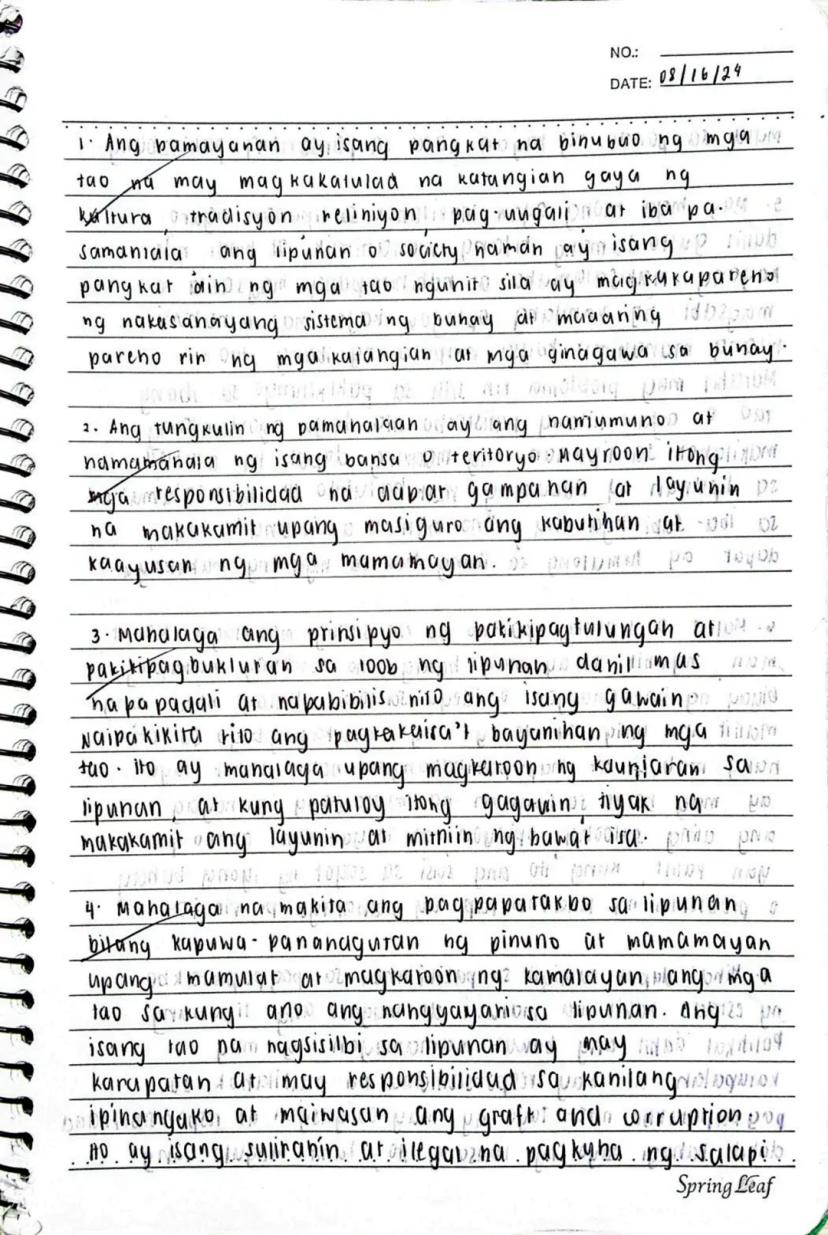 NO.:
DATE: 08/16/24
1. Ang pamayanan ay isang pangkat na binubuo ng mga
tao na may magkakatulad na katangian gaya ng
kultura, tradisyon, reliniyon, pag-uugali at iba pa.
samantala ang lipunan o society naman ay isang
pangkat din ng mga tao ngunit sila ay magkakapareho
ng nakasanayang sistema ng buhay at maaaring
pareho rin ng mga katangian at mga ginagawa sa buhay.
2. Ang tungkulin ng pamahalaan ay ang namumuno at
namamahala ng isang bansa o teritoryo. Mayroon itong
mga responsibilidad na dapat gampanan at layunin
na makakamit upang masiguro ang kabutihan at
kaayusan ng mga mamamayan.
3. Mahalaga ang prinsipyo ng pakikipagtulungan at
pakikipagbukluran sa loob ng lipunan dahil mas
napapadali at napabibilis nito ang isang gawain
Naipakikita rito ang pagkakaisa't bayanihan ng mga
tao. Ito ay mahalaga upang magkaroon ng kaunlaran sa
lipunan, at kung patuloy itong gagawin, tiyak na
makakamit ang layunin at mithiin ng bawat isa.
4. Mahalaga na makita ang pagpapatakbo sa lipunan
bilang kapuwa-pananagutan ng pinuno at mamamayan
upang mamulat at magkaroon ng kamalayan ang mga
tao sa kung ano ang nangyayari sa lipunan. Ang
isang tao na nagsisilbi sa lipunan ay may
karapatan at may responsibilidad sa kanilang
ipinangako at maiwasan ang graft and corruption.
Ito ay isang suliranin at ilegal na pagkuha ng salapi
Spring Leaf